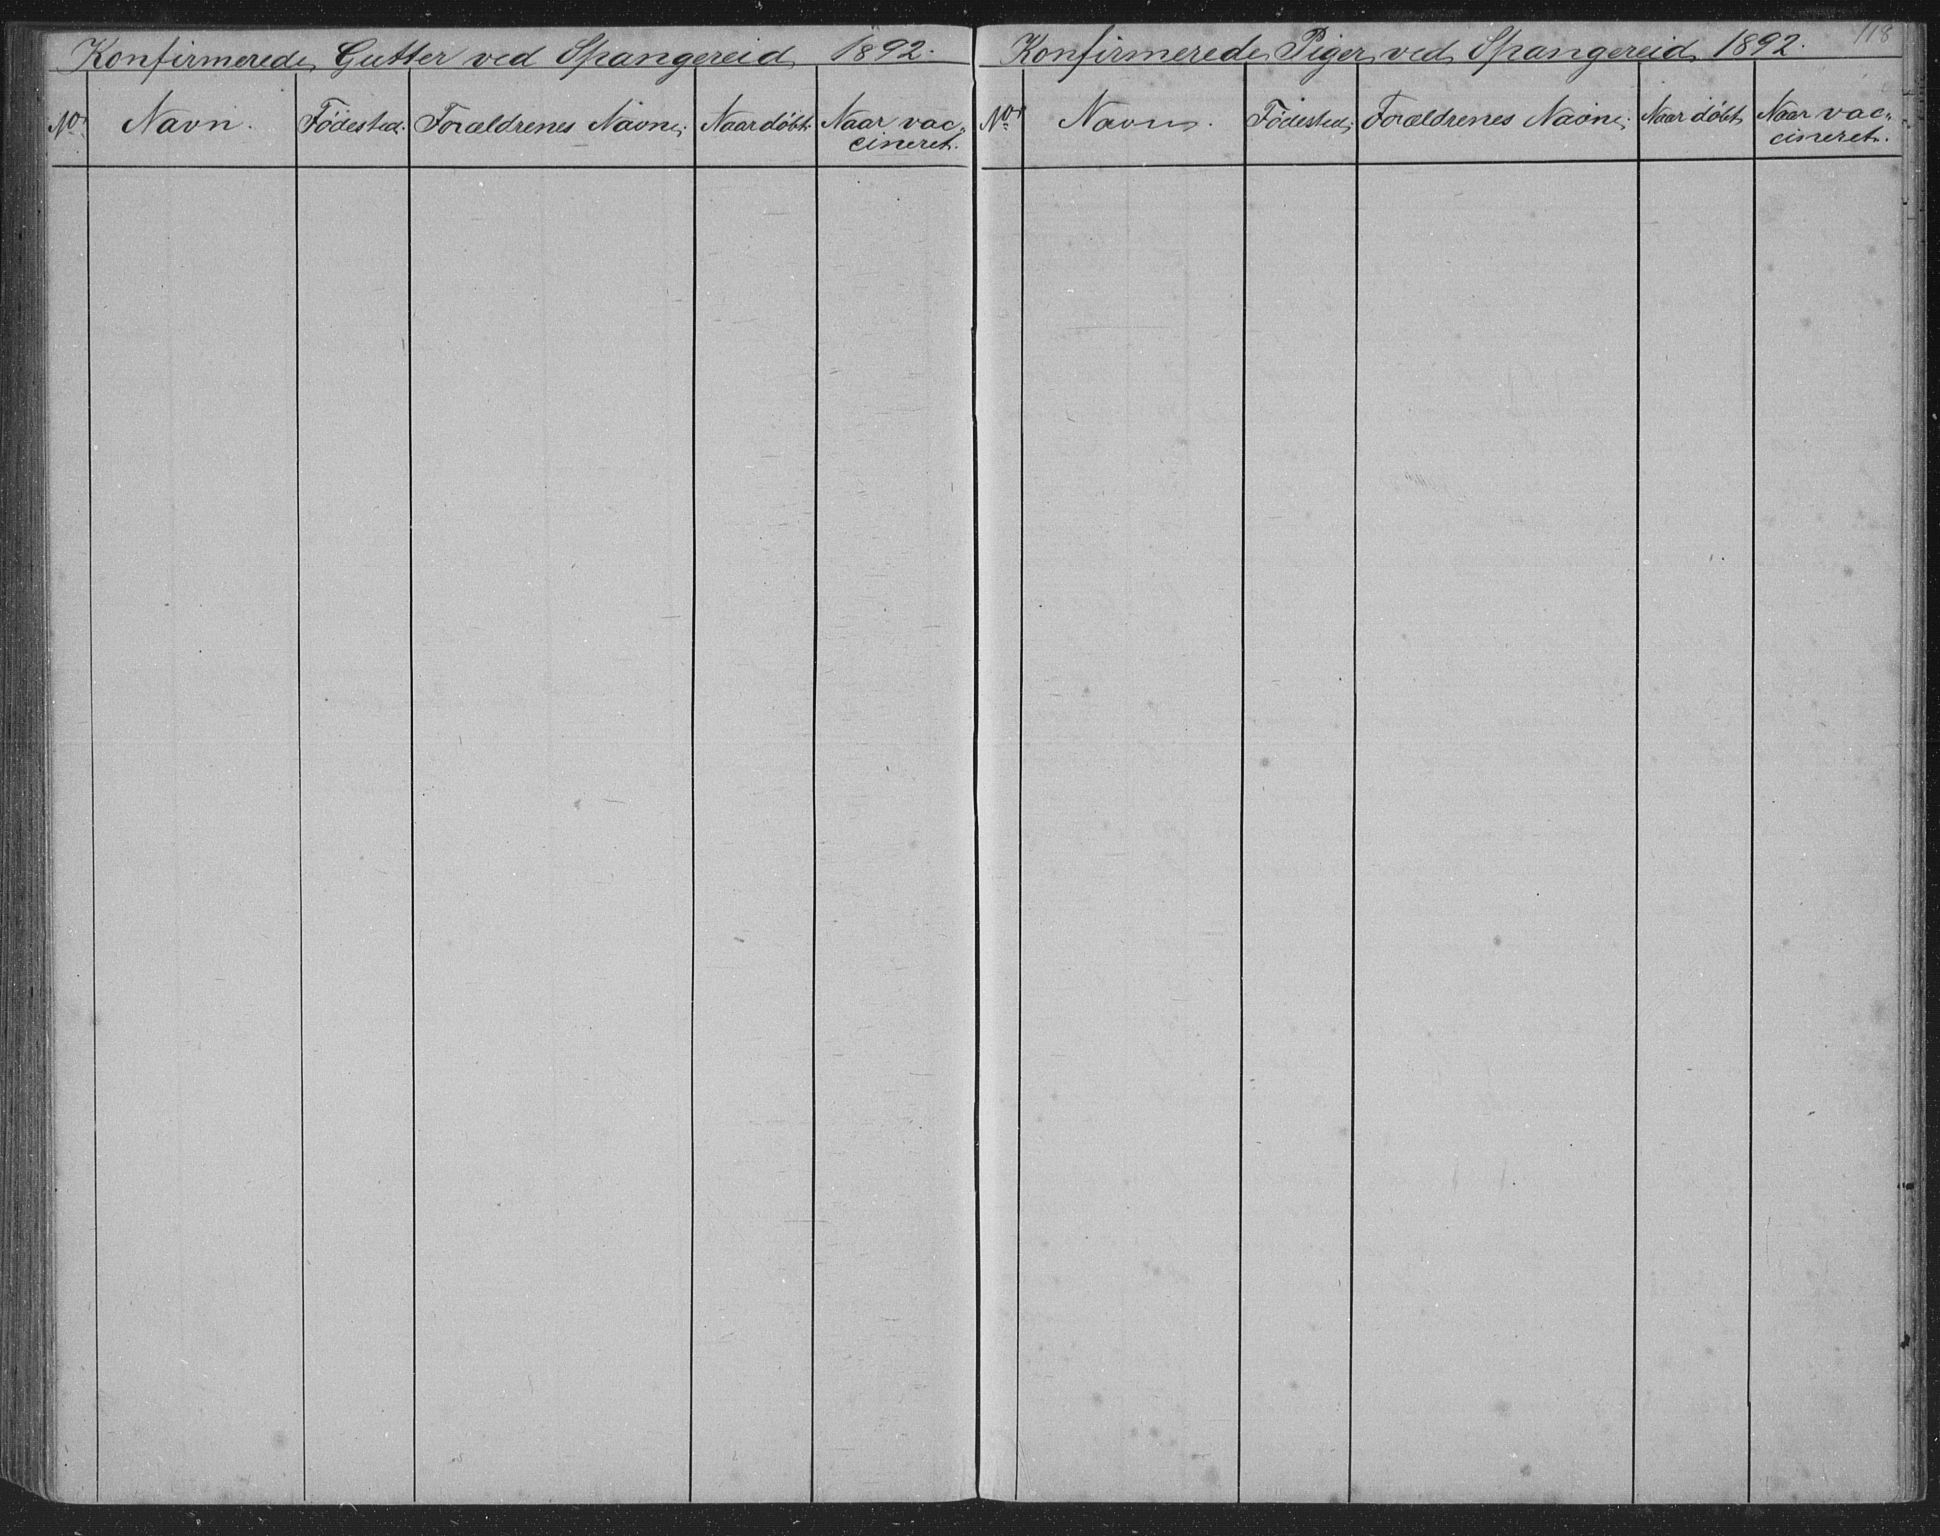 Konfirmerede Gutter ved Spangereid 1892.
No. Navn. Fødested. Forældrenes Navne. Naar døbt. Naar vac-
cineret.
118
Konfirmerede Piger ved Spangereid 1892.
No. Navn. Fødested. Forældrenes Navne. Naar døbt Naar vac-
cineret.